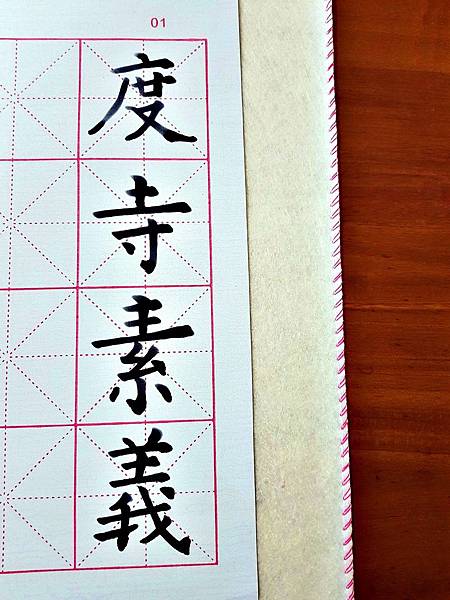 01
度寺素義